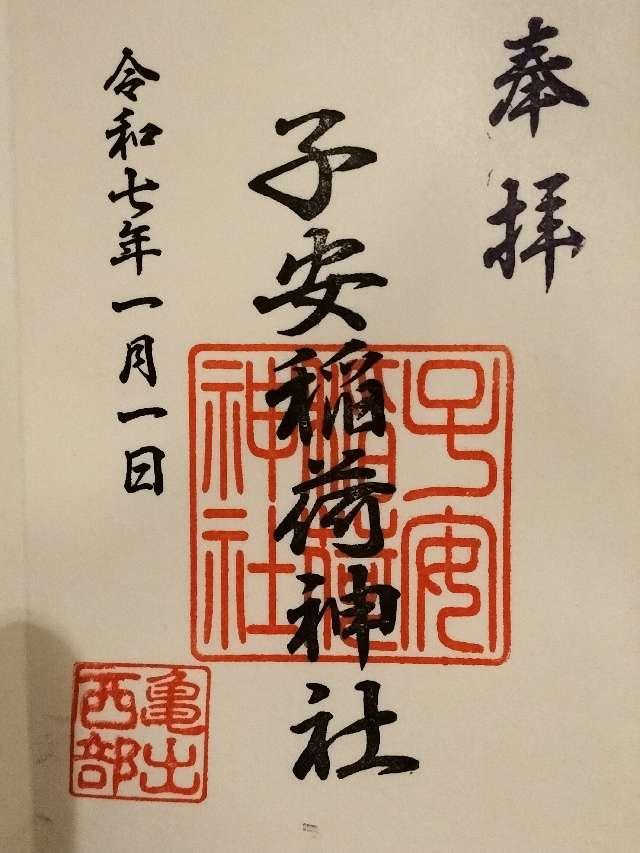 奉拝
子安稲荷神社
子安
稲荷
神社
令和七年一月一日
亀出
西部